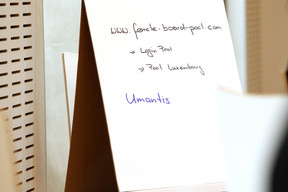 www.female-board-pool.com
→ Login Pool
→ Pool Luxembourg
Umantis